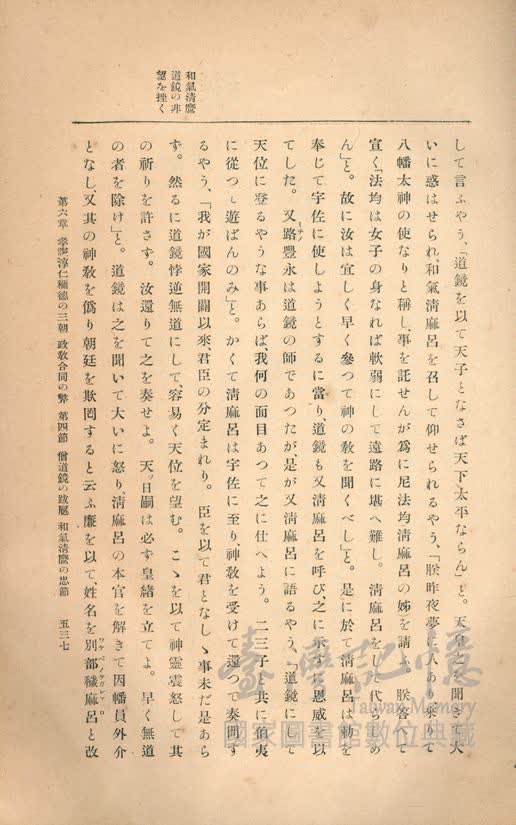 和氣淸麿
道鏡の非
望を挫く
して言ふやう、「道鏡を以て天子となさば天下太平ならん」と。天皇之を聞きて大
いに惑はせられ、和氣淸麻呂を召して仰せられるやう、「朕昨夜夢に人あり來りて
八幡太神の使なりと稱し、事を託せんが爲に尼法均淸麻呂の姉を請ふ、朕答へて
宣く「法均は女子の身なれば軟弱にして遠路に堪へ難し。淸麻呂をし、代らしめ
ん」と。故に汝は宜しく早く參つて神の敎を聞くべし」と。是に於て淸麻呂は勅を
奉じて宇佐に使しようとするに當り、道鏡も又淸麻呂を呼び、之に示すに恩威を以
てした。又路豐永は道鏡の師であつたが、是が又淸麻呂に語るやう、「道鏡にして
ミチノ
天位に登るやうな事あらば、我何の面目あつて之に仕へよう。二三子と共に狛夷
に從つて遊ばんのみ」と。かくて淸麻呂は宇佐に至り、神敎を受けて還つて奏聞す
るやう、「我が國家開闢以來、君臣の分定まれり。臣を以て君となしゝ事未だ是あら
ず。然るに道鏡悖逆無道にして、容易く天位を望む。こゝを以て神靈震怒して其
の祈りを許さず。汝還りて之を奏せよ。天ッ日嗣は必ず皇緖を立てよ。早く無道
の者を除け」と。道鏡は之を聞いて大いに怒り、淸麻呂の本官を解きて因幡員外介
となし、又其の神敎を僞り朝廷を欺罔すると云ふ廉を以て、姓名を別部穢麻呂と改
ワケベノケガレマロ
第六章 孝謙淳仁稱德の三朝 政敎合同の弊 第四節 僧道鏡の跋扈 和氣淸麿の忠節 五三七
臺灣記憶
Taiwan Memory
國家圖書館數位典藏